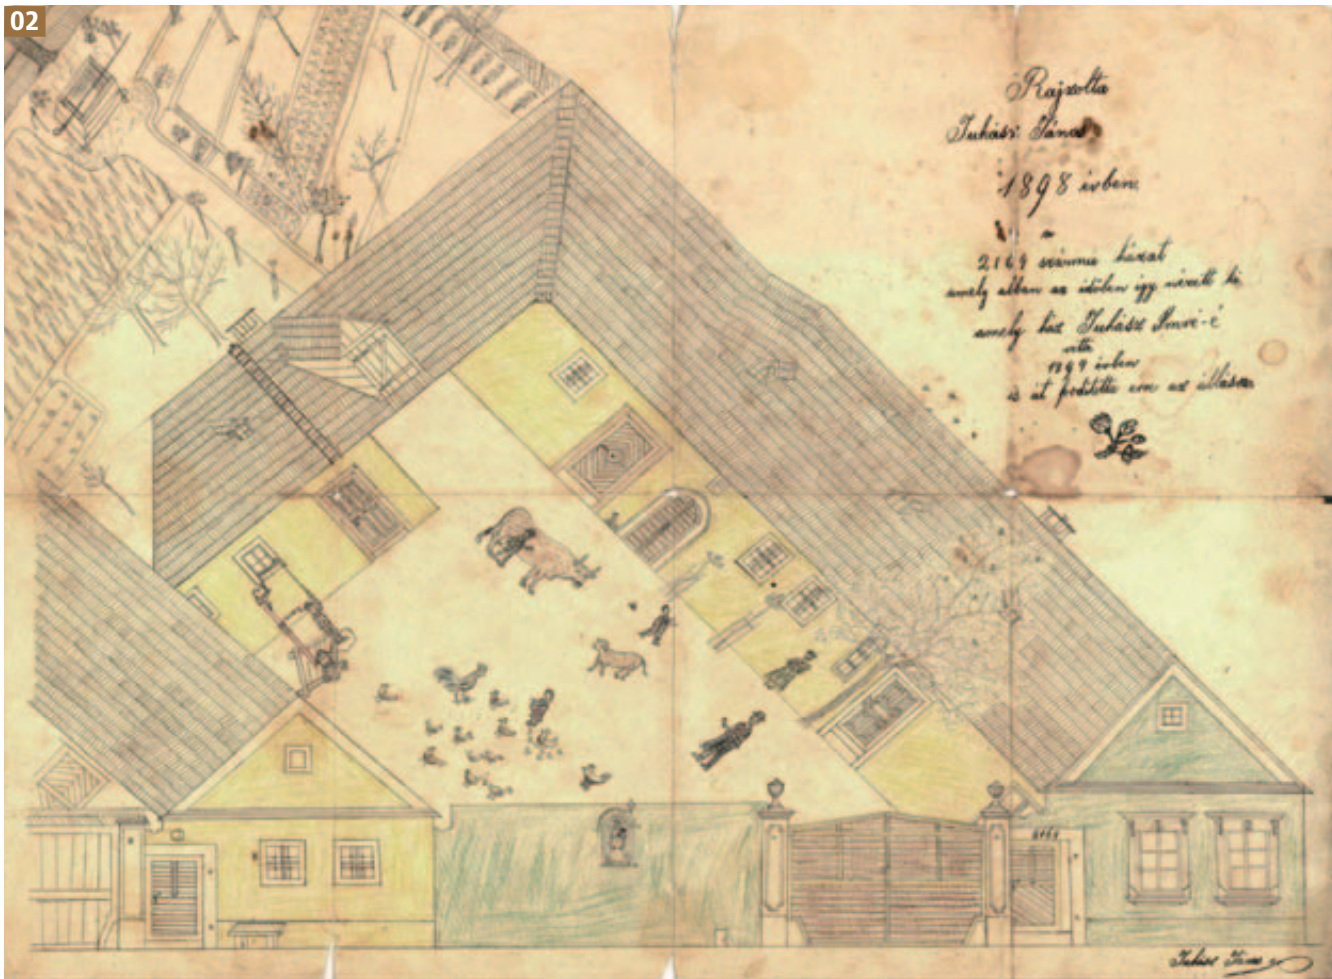 02
Rajzolta
Juhász János
1898 ivben
a
2169 számu házat
amely abban az időben igy nézett ki
amely ház Juhász Imré-é
vólt
1899 ivben
is át
az
2169
Juhász János